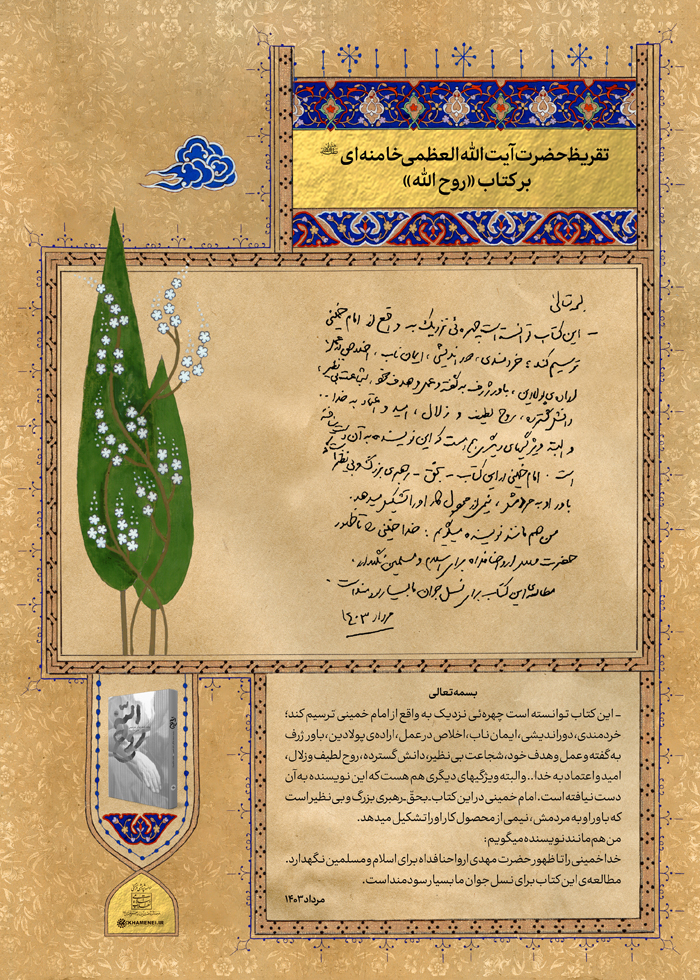 تقریظ حضرت آیت الله العظمی خامنه‌ای
بر کتاب «روح الله»
بسمه تعالی
- این کتاب توانسته است چهره‌ئی نزدیک به واقع از امام خمینی
ترسیم کند؛ خردمندی، دوراندیشی، ایمان ناب، اخلاص در عمل،
اراده‌ی پولادین، باور ژرف به گفته و عمل و هدف خود، شجاعت بی‌نظیر،
دانش گسترده، روح لطیف و زلال، امید و اعتماد به خدا..
و البته ویژگیهای دیگری هم هست که این نویسنده به آن دست نیافته
است. امام خمینی در این کتاب - بحق - رهبری بزرگ و بی نظیر است که
باور او به مردمش، نیمی از محصول کار او را تشکیل میدهد.
من هم مانند نویسنده میگویم: خدا خمینی را تا ظهور
حضرت مهدی ارواحنا فداه برای اسلام و مسلمین نگهدارد.
مطالعه‌ی این کتاب برای نسل جوان ما بسیار سودمند است.
مرداد ۱۴۰۳
بسمه تعالی
- این کتاب توانسته است چهره‌ئی نزدیک به واقع از امام خمینی ترسیم کند؛
خردمندی، دوراندیشی، ایمان ناب، اخلاص در عمل، اراده‌ی پولادین، باور ژرف
به گفته و عمل و هدف خود، شجاعت بی نظیر، دانش گسترده، روح لطیف و زلال،
امید و اعتماد به خدا.. و البته ویژگیهای دیگری هم هست که این نویسنده به آن
دست نیافته است. امام خمینی در این کتاب - بحقّ - رهبری بزرگ و بی نظیر است
که باور او به مردمش، نیمی از محصول کار او را تشکیل میدهد.
من هم مانند نویسنده میگویم:
خدا خمینی را تا ظهور حضرت مهدی ارواحنا فداه برای اسلام و مسلمین نگهدارد.
مطالعه‌ی این کتاب برای نسل جوان ما بسیار سودمند است.
مرداد ۱۴۰۳
KHAMENEI.IR